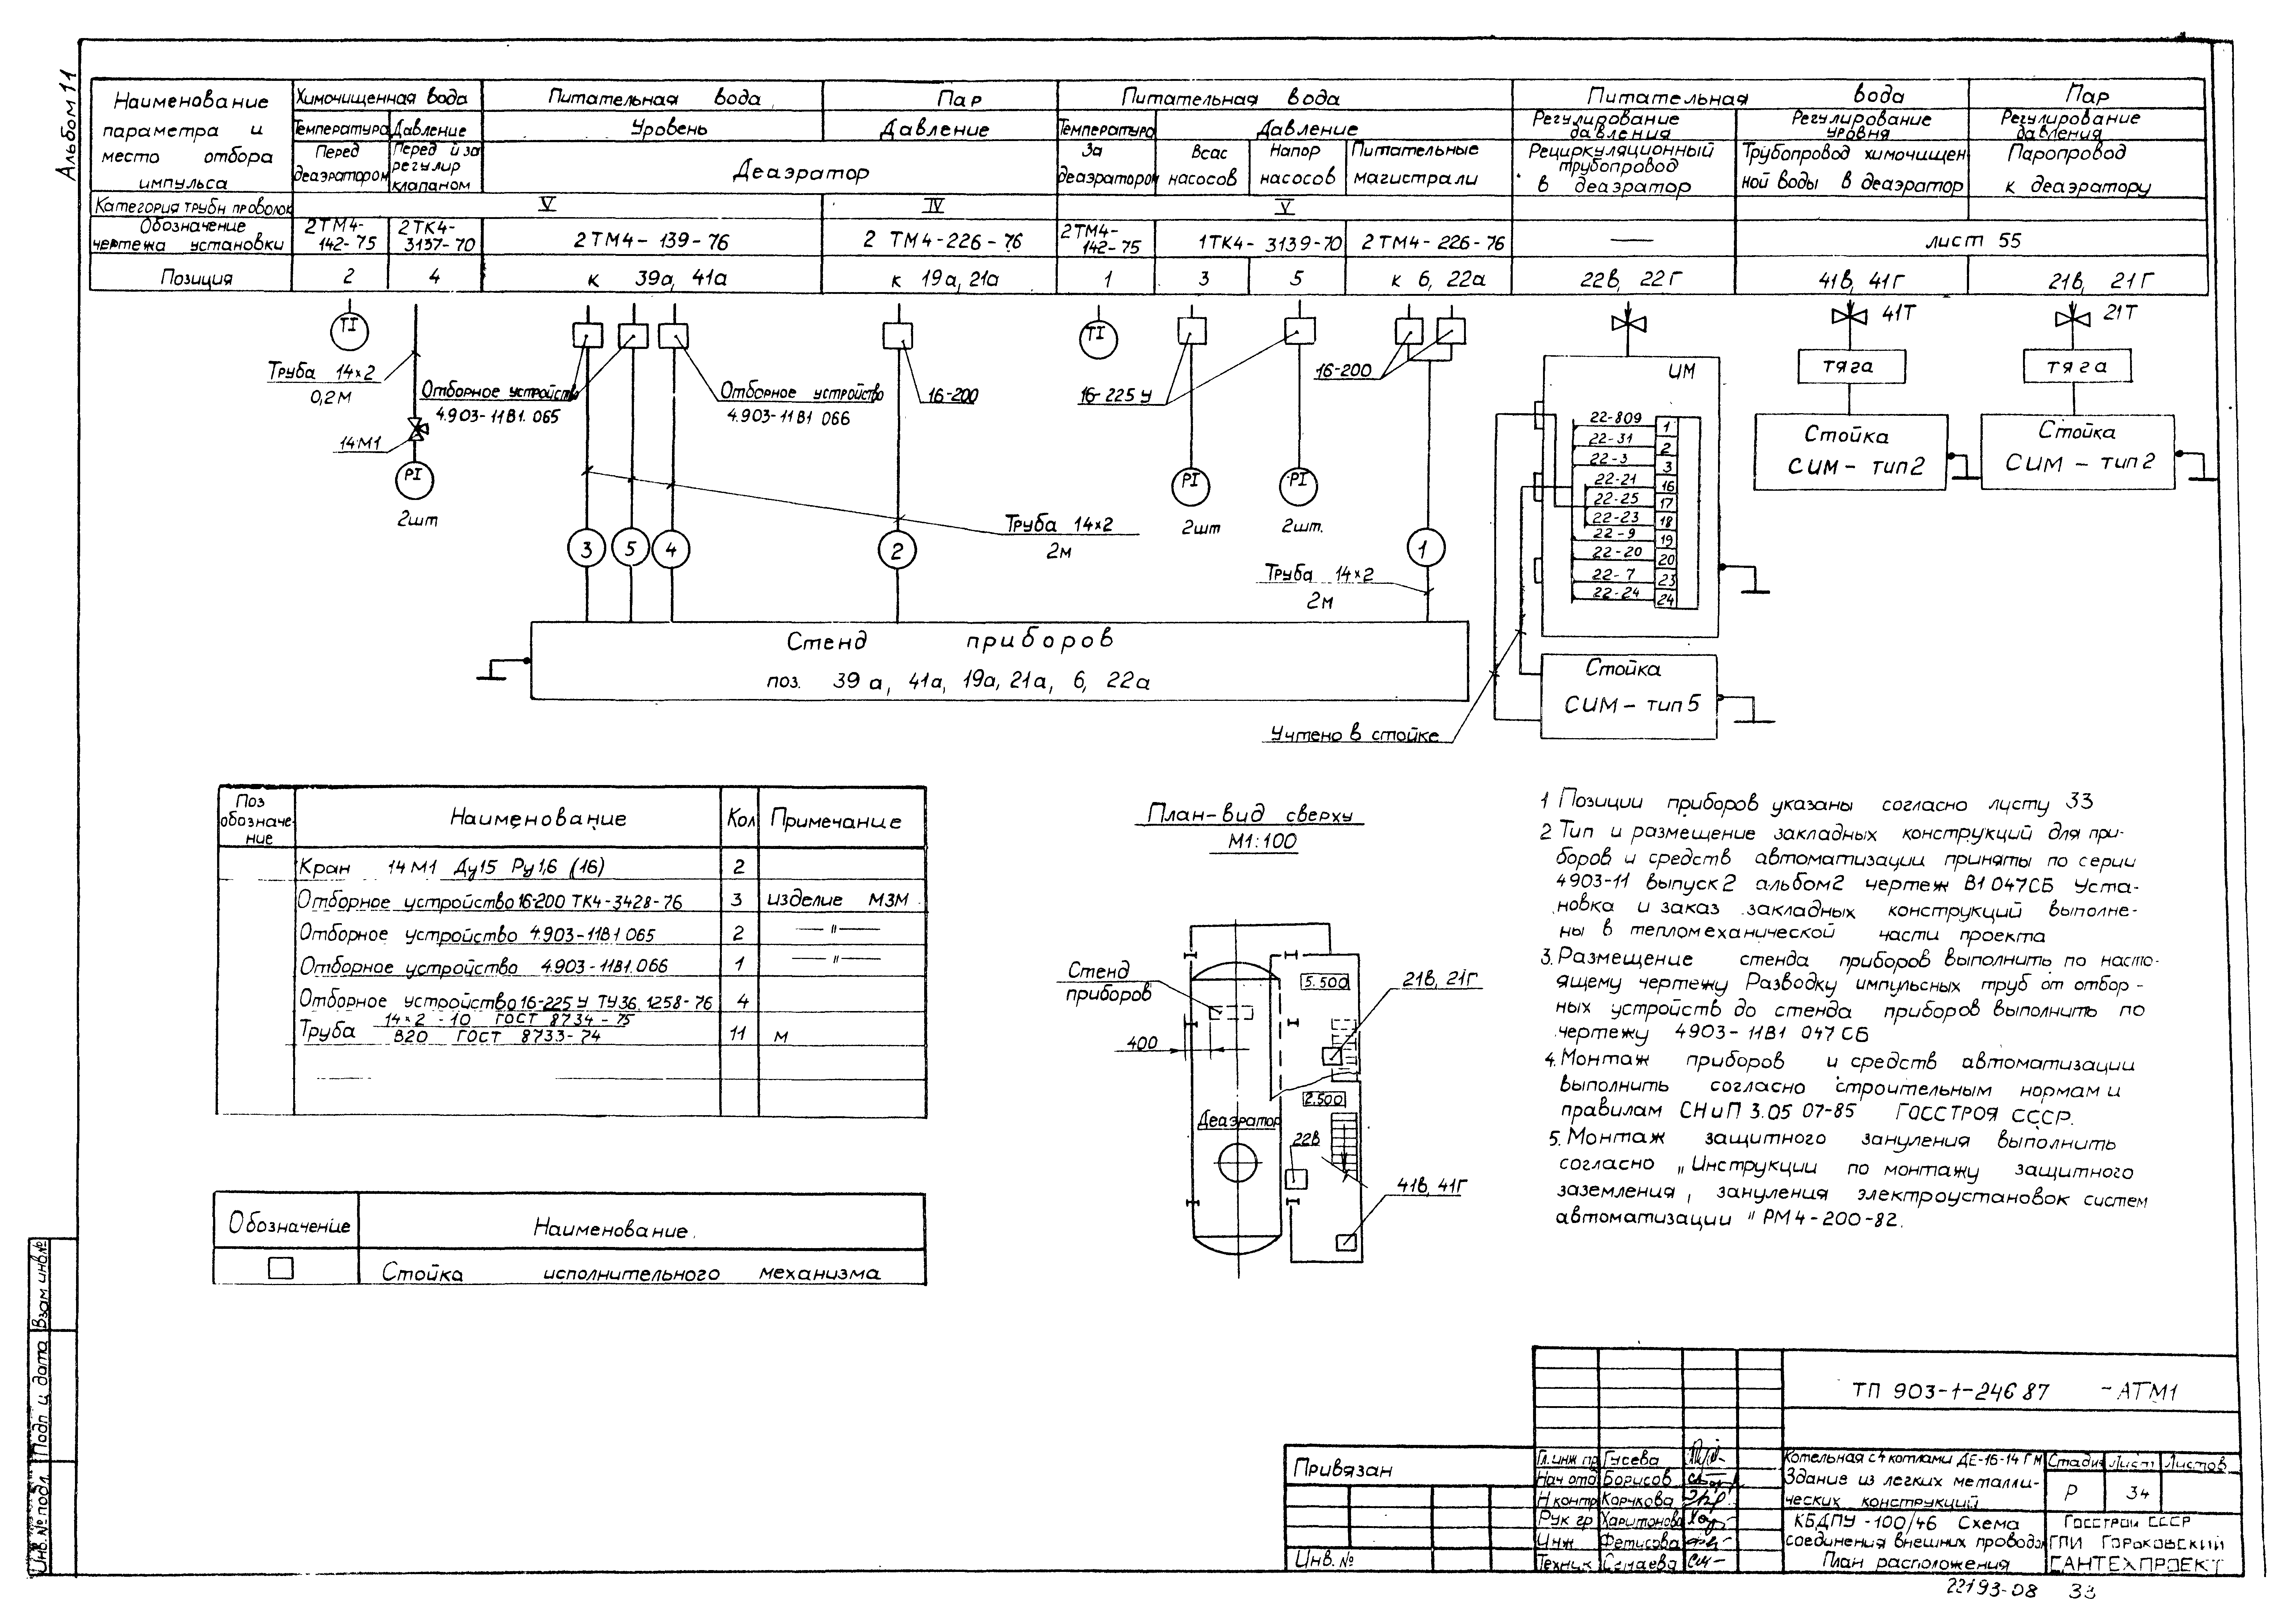 Альбом 11
Наименование параметра и место отбора импульса
Химочищенная вода
Питательная вода
Пар
Питательная вода
Питательная вода
Пар
Температура
Давление
Уровень
Давление
Температура
Давление
Регулирование давления
Регулирование уровня
Регулирование давления
Перед деаэратором
Перед и за регулир клапаном
Деаэратор
За деаэратором
Всас насосов
Напор насосов
Питательные магистрали
Рециркуляционный трубопровод в деаэратор
Трубопровод химочищенной воды в деаэратор
Паропровод к деаэратору
Категория трубн проволок
V
IV
V
Обозначение чертежа установки
2ТМ4-142-75
2ТК4-3137-70
2ТМ4-139-76
2 ТМ4-226-76
2ТМ4-142-75
1ТК4-3139-70
2ТМ4-226-76
—
лист 55
Позиция
2
4
к 39а, 41а
к 19а, 21а
1
3
5
к 6, 22а
22в, 22г
41в, 41г
21в, 21г
TI
TI
41Т
21Т
Труба 14×2
0,2м
Отборное устройство
4.903-11В1.065
Отборное устройство
4.903-11В1 066
16-200
16-225У
16-200
ИМ
тяга
тяга
14М1
PI
2шт
PI
2шт
PI
2шт.
Стойка
СИМ - тип2
Стойка
СИМ - тип2
22-809 1
22-31 2
22-3 3
22-21 16
22-25 17
22-23 18
22-9 19
22-20 20
22-7 23
22-24 24
3
5
4
2
1
Труба 14×2
2м
Труба 14×2
2м
Стенд приборов
поз. 39а, 41а, 19а, 21а, 6, 22а
Стойка
СИМ - тип5
Учтено в стойке
Поз обозначение
Наименование
Кол
Примечание
Кран 14М1 Ду15 Ру1,6 (16) 2
Отборное устройство 16-200 ТК4-3428-76 3 изделие МЗМ
Отборное устройство 4.903-11В1.065 2 — " —
Отборное устройство 4.903-11В1.066 1 — " —
Отборное устройство 16-225У ТУ36.1258-76 4
Труба 14×2 -10 ГОСТ 8734-75
В20 ГОСТ 8733-74 11 м
Обозначение
Наименование.
Стойка исполнительного механизма
План-вид сверху
М1:100
Стенд приборов
400
5.500
21в, 21г
2.500
Деаэратор
22в
41в, 41г
1 Позиции приборов указаны согласно листу 33
2 Тип и размещение закладных конструкций для при-
боров и средств автоматизации приняты по серии
4903-11 выпуск2 альбом2 чертеж В1 047СБ Уста-
новка и заказ закладных конструкций выполне-
ны в тепломеханической части проекта
3. Размещение стенда приборов выполнить по насто-
ящему чертежу Разводку импульсных труб от отбор-
ных устройств до стенда приборов выполнить по
чертежу 4903-11В1 047СБ
4. Монтаж приборов и средств автоматизации
выполнить согласно строительным нормам и
правилам СНиП 3.05 07-85 ГОССТРОЯ СССР.
5. Монтаж защитного зануления выполнить
согласно „Инструкции по монтажу защитного
заземления, зануления электроустановок систем
автоматизации" РМ4-200-82.
Взам инв.№
Подп и дата
Инв.№ подл.
ТП 903-1-246 87 -АТМ1
Привязан
Инв. №
Гл. инж пр Гусева
Нач отд Борисов
Н контр Карчкова
Рук гр Харитонова
Инж Фетисова
Техник
Котельная с 4 котлами ДЕ-16-14 ГМ
Здание из легких металли-
ческих конструкций
Стадия
Лист
Листов
Р
34
КБДПУ-100/46 Схема
соединения внешних проводок
План расположения
Госстрой СССР
ГПИ Горьковский
САНТЕХПРОЕКТ
22193-08 33